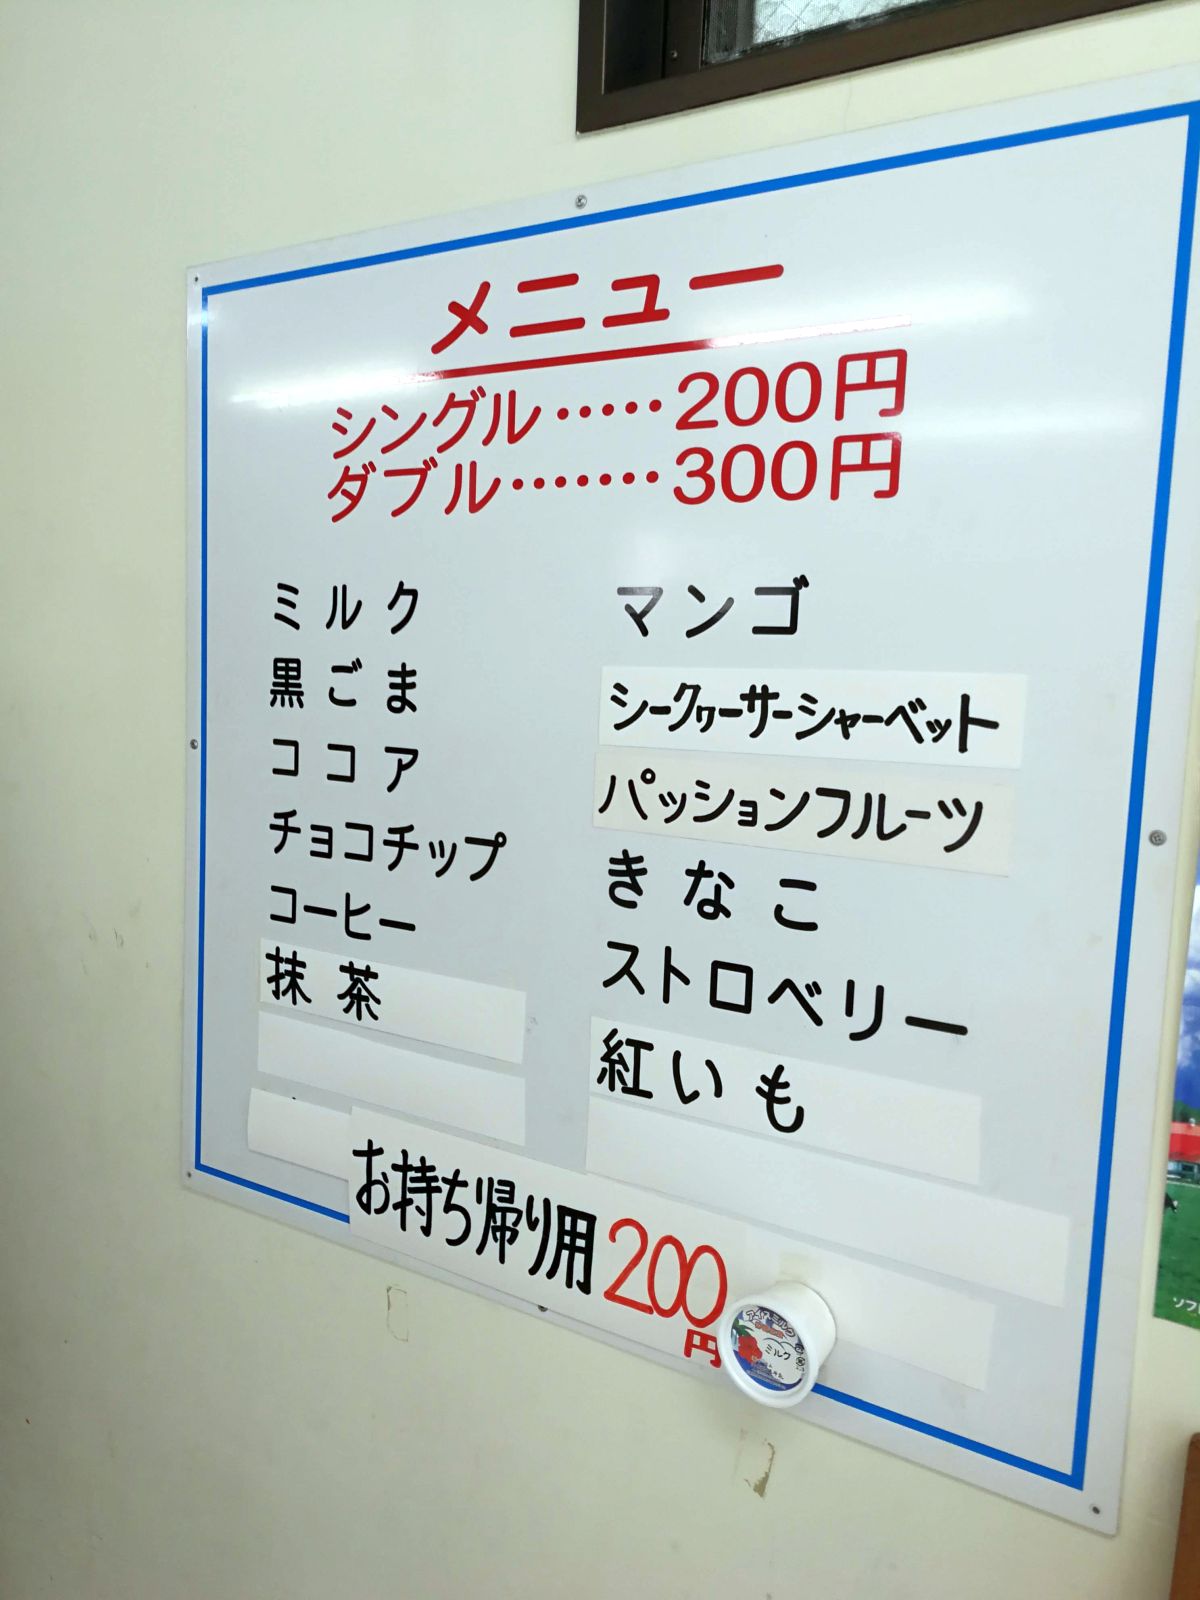 メニュー
シングル・・・・・200円
ダブル・・・・・・・300円
ミルク
黒ごま
ココア
チョコチップ
コーヒー
抹茶
マンゴ
シークヮーサーシャーベット
パッションフルーツ
きなこ
ストロベリー
紅いも
お持ち帰り用200円
アイスミルク
ミルク
ソフ